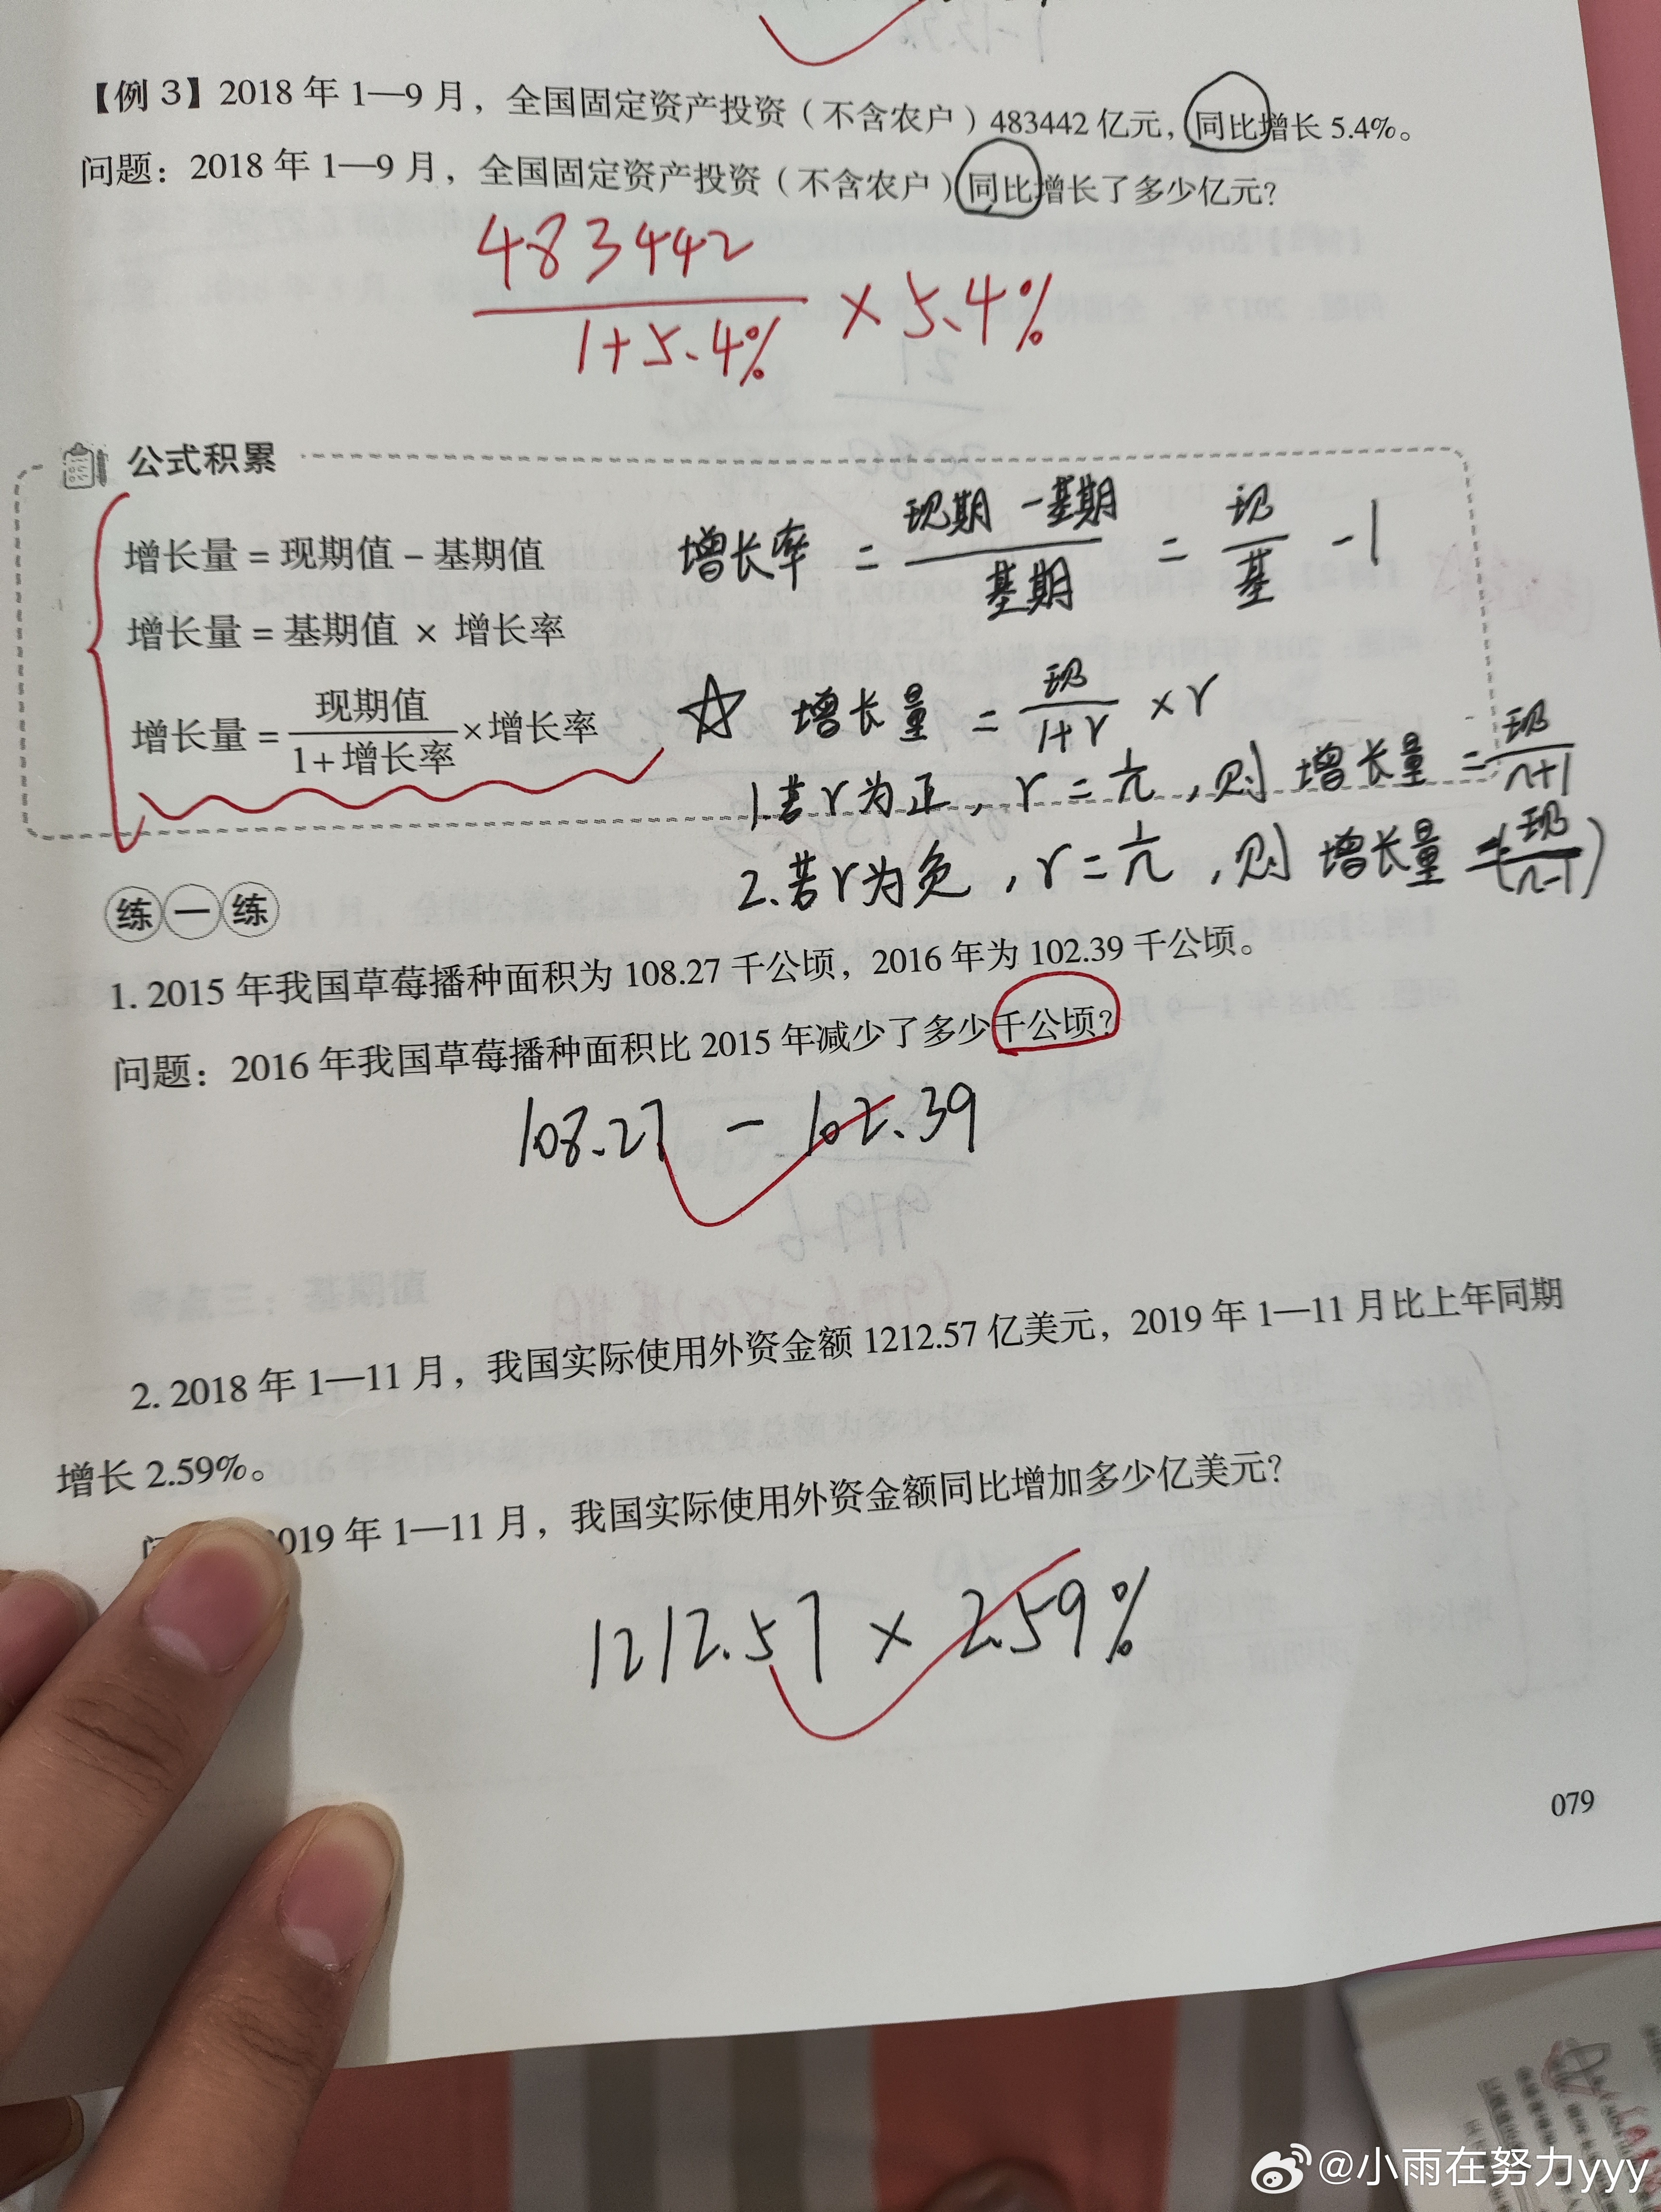 【例 3】2018 年 1—9 月，全国固定资产投资（不含农户）483442 亿元，同比增长 5.4%。
问题：2018 年 1—9 月，全国固定资产投资（不含农户）同比增长了多少亿元？
483442
1+5.4%
×5.4%
公式积累
增长量 = 现期值 − 基期值
增长率 = 现期 − 基期 / 基期 = 现 / 基 − 1
增长量 = 基期值 × 增长率
增长量 = 现期值 / 1+增长率 × 增长率
☆ 增长量 = 现 / 1+r × r
1.若r为正，r = 1/n，则 增长量 = 现 / n+1
2.若r为负，r = 1/n，则 增长量 = (现 / n-1)
练一练
1. 2015 年我国草莓播种面积为 108.27 千公顷，2016 年为 102.39 千公顷。
问题：2016 年我国草莓播种面积比 2015 年减少了多少千公顷？
108.27 − 102.39
2. 2018 年 1—11 月，我国实际使用外资金额 1212.57 亿美元，2019 年 1—11 月比上年同期
增长 2.59%。
019 年 1—11 月，我国实际使用外资金额同比增加多少亿美元？
1212.57 × 2.59%
079
@小雨在努力yyy